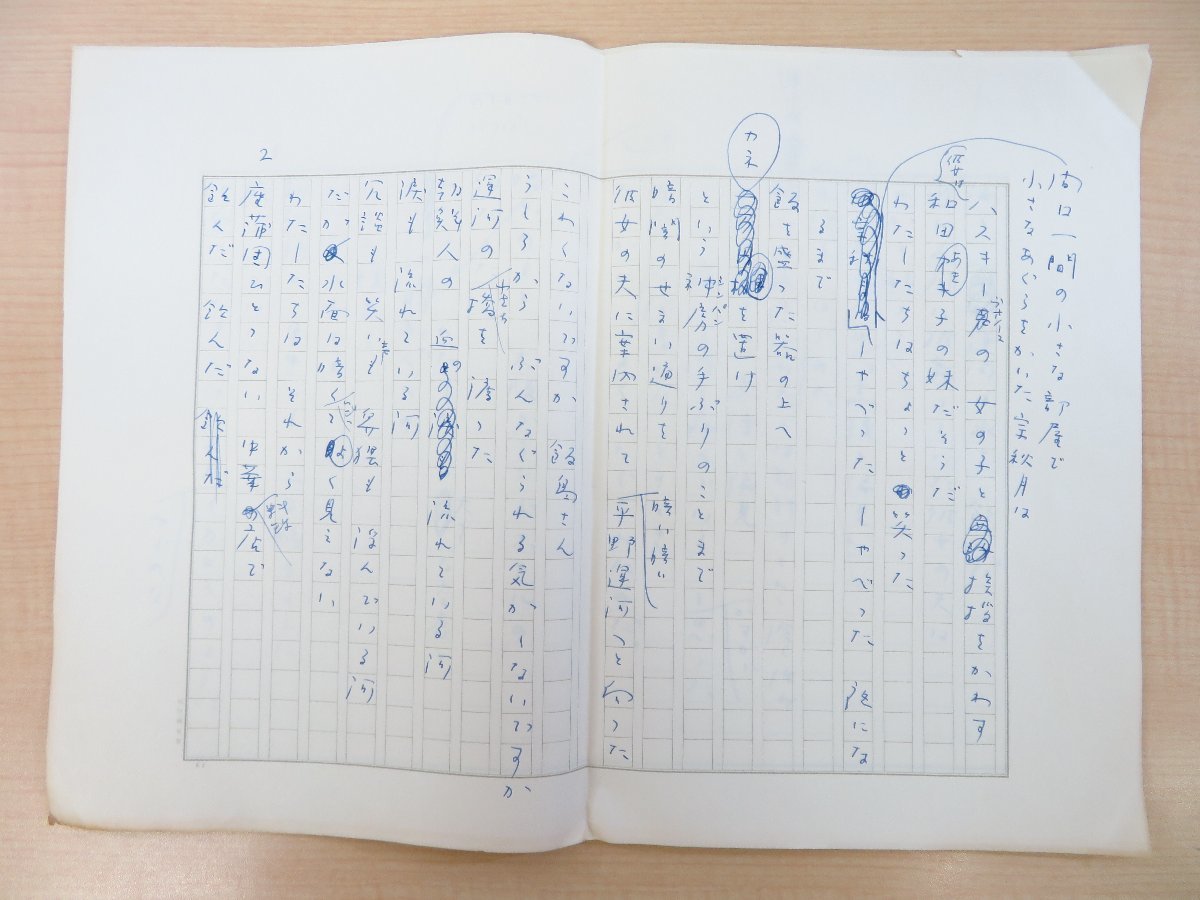 間口一間の小さな部屋で
小さなあぐらをかいた宗秋月は
ハスキー の女の子と 挨拶をかわす
彼女は和田あき子の妹だそうだ
わたしたちはちょっと笑った
しゃべった しゃべった 夜にな
るまで
飯を盛った器の上へ
カネ を置け
という神房の手ぶりのことまで
暗闇のせまい通りを 暗い暗い
彼女の夫に案内されて 平野運河へと向った
こわくないですか 飯島さん
うしろから ぶんなぐられる気がしないですか
運河の 橋を 渡った
朝鮮人の 血の 流れている河
涙も 流れている河
冗談も 笑いも 卑猥も 浮んでいる河
だが 水面は暗くて よく見えない
わたしたちは それから
座蒲団ひとつない 中華料理店で
飲んだ 飲んだ 飲んだ
2